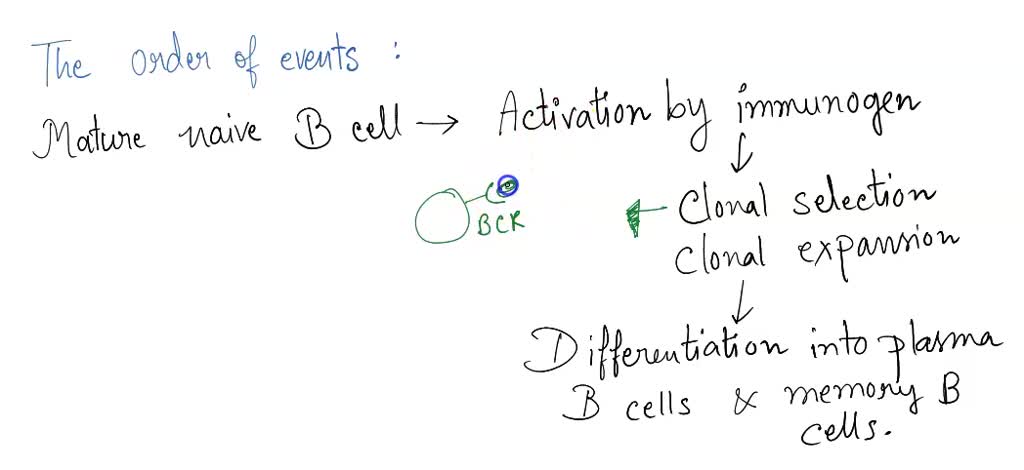 The order of events :
Mature naive B cell → Activation by immunogen
↓
BCR
← Clonal selection
Clonal expansion
↓
Differentiation into plasma
B cells & memory B
cells.